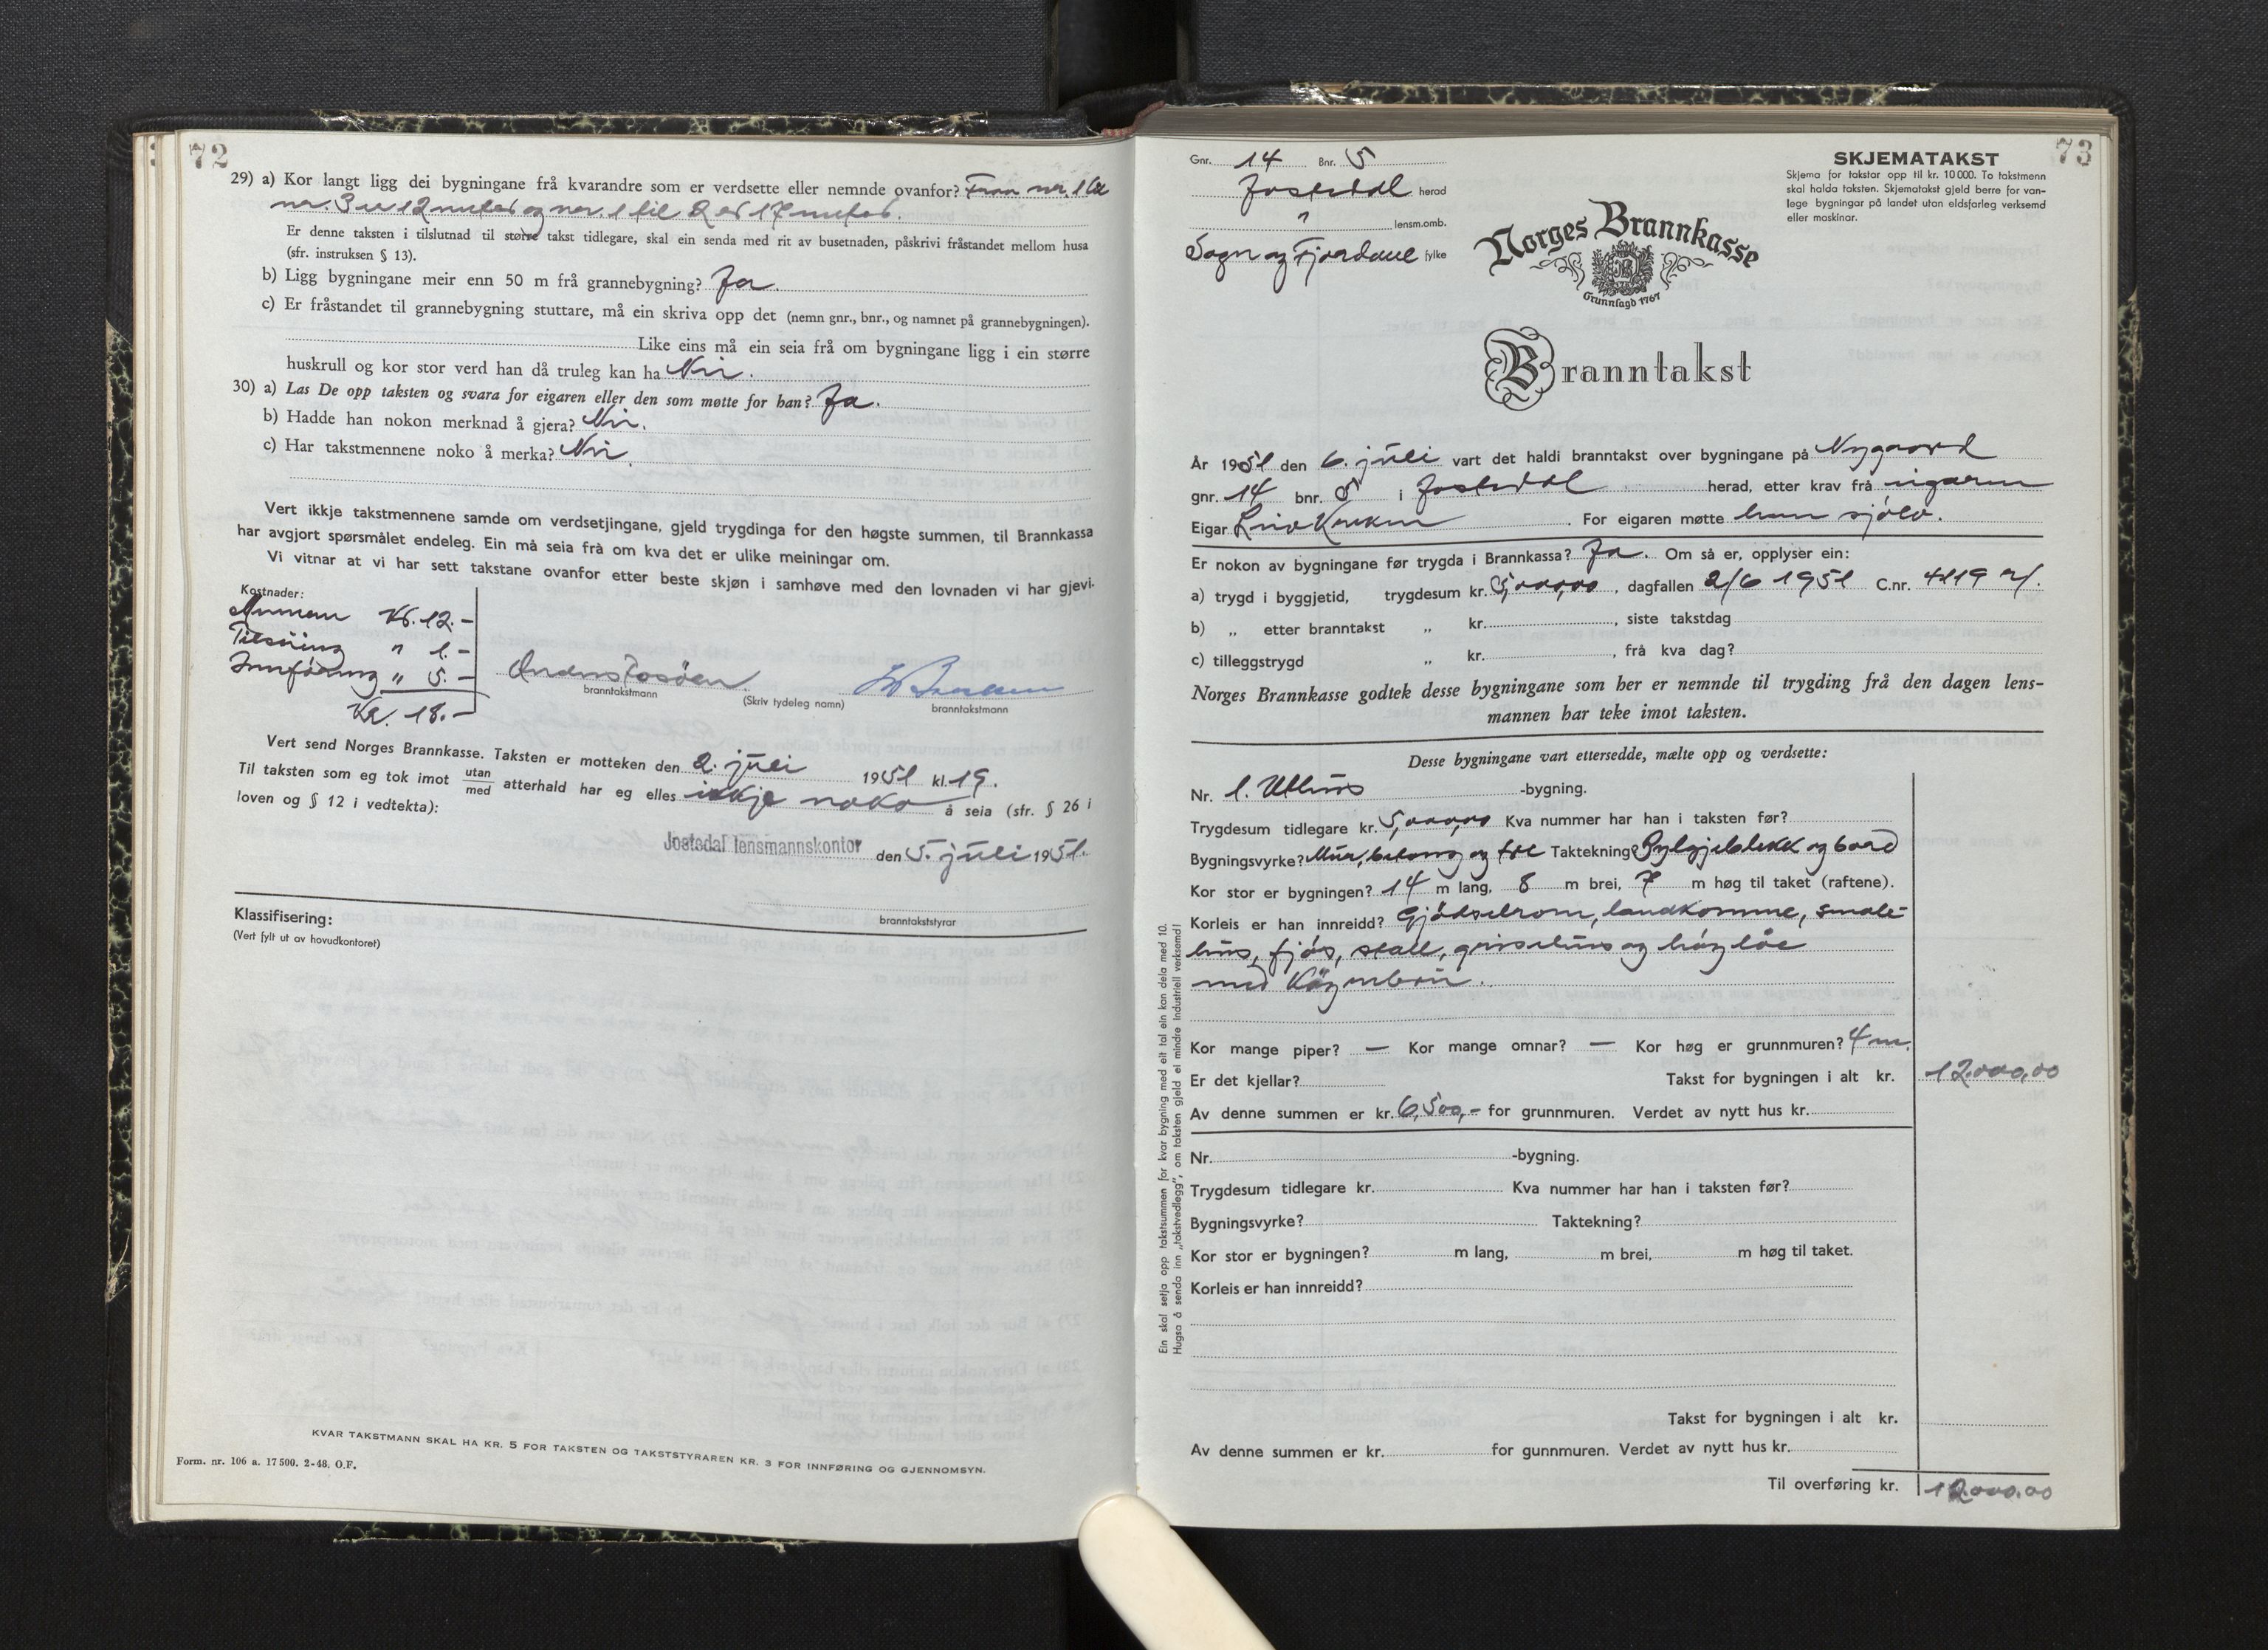 72
29) a) Kor langt ligg dei bygningane frå kvarandre som er verdsette eller nemnde ovanfor? Fraa nr. 1 til
nr. 3 er 12 meter og nr. 1 til 2 er 17 meter.
Er denne taksten i tilslutnad til større takst tidlegare, skal ein senda med rit av busetnaden, påskrivi fråstandet mellom husa
(sfr. instruksen § 13).
b) Ligg bygningane meir enn 50 m frå grannebygning? Ja.
c) Er fråstandet til grannebygning stuttare, må ein skriva opp det (nemn gnr., bnr., og namnet på grannebygningen).
Like eins må ein seia frå om bygningane ligg i ein større
huskrull og kor stor verd han då truleg kan ha Nei.
30) a) Las De opp taksten og svara for eigaren eller den som møtte for han? Ja.
b) Hadde han nokon merknad å gjera? Nei.
c) Har takstmennene noko å merka? Nei.
Vert ikkje takstmennene samde om verdsetjingane, gjeld trygdinga for den høgste summen, til Brannkassa
har avgjort spørsmålet endeleg. Ein må seia frå om kva det er ulike meiningar om.
Vi vitnar at vi har sett takstane ovanfor etter beste skjøn i samhøve med den lovnaden vi har gjevi.
Kostnader:
Mennene Kr. 12.-
Tilsning " 1.-
Innføring " 5.-
Kr. 18.-
branntakstmann
(Skriv tydeleg namn)
branntakstmann
Vert send Norges Brannkasse. Taksten er motteken den 2. juli 1951 kl. 19.
Til taksten som eg tok imot utan/med atterhald har eg elles ikkje noko å seia (sfr. § 26 i
loven og § 12 i vedtekta):
Jostedal lensmannskontor den 5. juli 1951.
branntakststyrar
Klassifisering:
(Vert fylt ut av hovudkontoret)
KVAR TAKSTMANN SKAL HA KR. 5 FOR TAKSTEN OG TAKSTSTYRAREN KR. 3 FOR INNFØRING OG GJENNOMSYN.
Form. nr. 106 a. 17500. 2-48. O.F.
73
Gnr. 14 Bnr. 5
Jostedal herad
" lensm.omb.
Sogn og Fjordane fylke
SKJEMATAKST
Skjema for takstar opp til kr. 10 000. To takstmenn
skal halda taksten. Skjematakst gjeld berre for van-
lege bygningar på landet utan eldsfarleg verksemd
eller maskinar.
Norges Brannkasse
Grunnlagd 1767
Branntakst
År 1951 den 6. juli vart det haldi branntakst over bygningane på Nygaard
gnr. 14 bnr. 5 i Jostedal herad, etter krav frå eigaren
Eigar . For eigaren møtte han sjølv.
Er nokon av bygningane før trygda i Brannkassa? Ja. Om så er, opplyser ein:
a) trygd i byggjetid, trygdesum kr. 5,000,00, dagfallen 2/6 1951 C.nr. 4119
b) „ etter branntakst „ kr. , siste takstdag
c) tilleggstrygd „ kr. , frå kva dag?
Norges Brannkasse godtek desse bygningane som her er nemnde til trygding frå den dagen lens-
mannen har teke imot taksten.
Desse bygningane vart ettersedde, mælte opp og verdsette:
Nr. 1. Uthus -bygning.
Trygdesum tidlegare kr. 5,000,00 Kva nummer har han i taksten før?
Bygningsvyrke? Mur, betong og tre Taktekning? Bylgjeblekk og bord
Kor stor er bygningen? 14 m lang, 8 m brei, 7 m høg til taket (raftene).
Korleis er han innreidd? Gjødselrom, landkomme, smale-
hus, fjøs, stall, grisehus og høyløe
med køyrebru.
Kor mange piper? — Kor mange omnar? — Kor høg er grunnmuren? 4 m.
Er det kjellar? Takst for bygningen i alt kr. 12.000,00
Av denne summen er kr. 6,500,- for grunnmuren. Verdet av nytt hus kr.
Nr. -bygning.
Trygdesum tidlegare kr. Kva nummer har han i taksten før?
Bygningsvyrke? Taktekning?
Kor stor er bygningen? m lang, m brei, m høg til taket.
Korleis er han innreidd?
Takst for bygningen i alt kr.
Av denne summen er kr. for gunnmuren. Verdet av nytt hus kr.
Til overføring kr. 12.000,00
Ein skal setja opp takstsummen for kvar bygning med eit tal ein kan dela med 10.
Hugsa å senda inn „takstvedlegg", om taksten gjeld ei mindre Industriell verksemd!